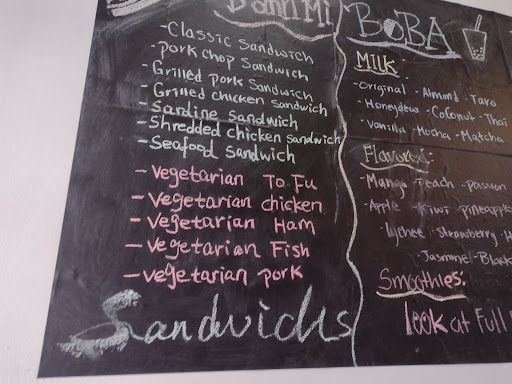 Banh Mi
-Classic Sandwich
-Pork chop Sandwich
-Grilled pork Sandwich
-Grilled chicken sandwich
-Sardine sandwich
-Shredded chicken sandwich
-Seafood Sandwich
-Vegetarian To Fu
-Vegetarian chicken
-Vegetarian Ham
-Vegetarian Fish
-Vegetarian pork
Sandwichs
BOBA
MILK:
-Original -Almond -Taro
-Honeydew -Coconut -Thai
-Vanilla -Mocha -Matcha
Flavored:
-Mango -Peach -passion
-Apple -Kiwi -pineapple
-Lychee -Strawberry -H
-Jasmine -Black
Smoothies:
look at Full